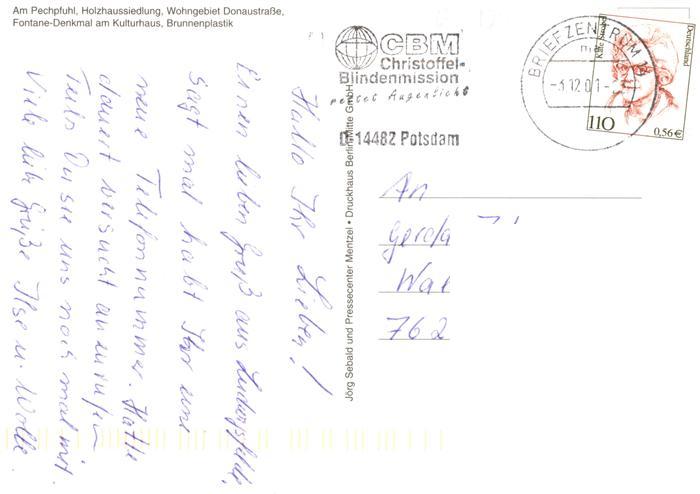 Am Pechpfuhl, Holzhaussiedlung, Wohngebiet Donaustraße,
Fontane-Denkmal am Kulturhaus, Brunnenplastik
Hallo Ihr Lieben!
Einen lieben Gruß aus Ludwigsfelde,
Sagt mal habt Ihr eine
neue Telefonnummer. Hatte
dauernd versucht anzurufen
Teile Du sie uns noch mal mit.
Viele liebe Grüße Ilse u. Wolle.
Jörg Sebald und Pressecenter Mentzel • Druckhaus Berlin-Mitte GmbH
CBM
Christoffel-
Blindenmission
rettet Augenlicht
D-14482 Potsdam
BRIEFZENTRUM
-3.12.01-
Deutschland
110
0,56€
An
Gerda
Wal
762